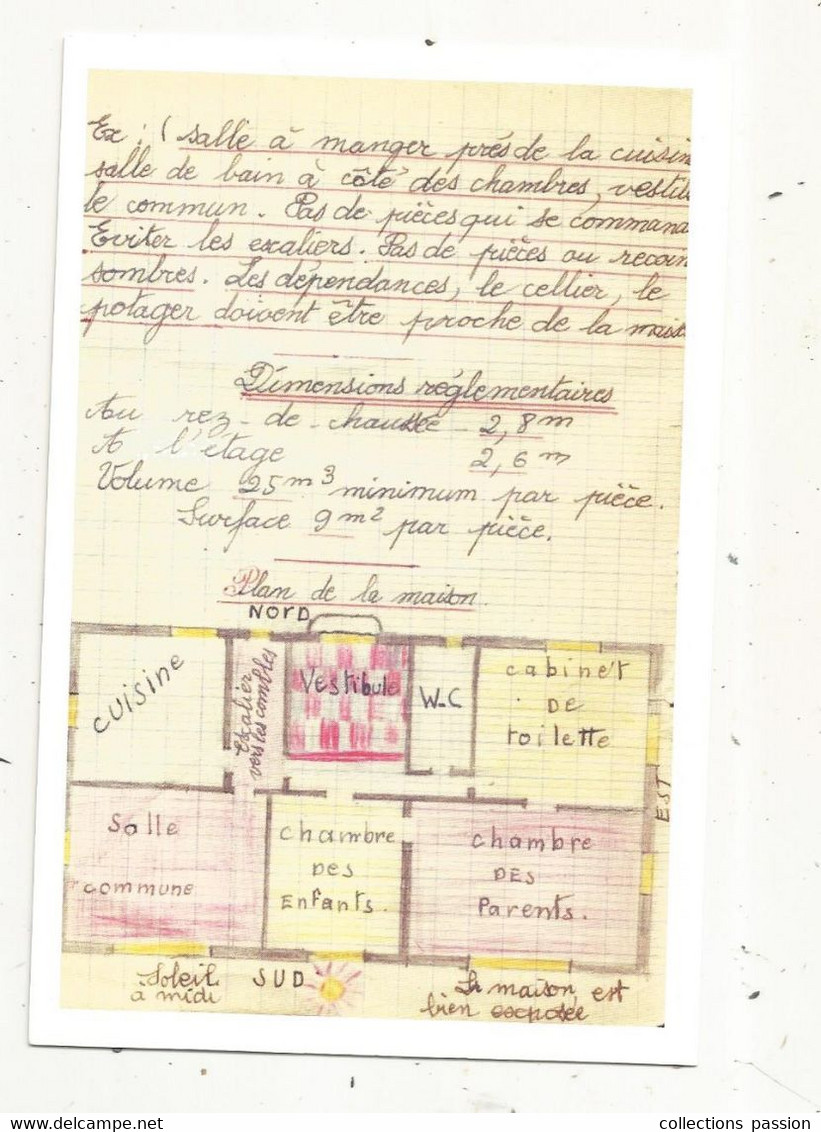 Ex : ( salle à manger près de la cuisin
salle de bain à côté des chambres, vestib
le commun. Pas de pièces qui se command
Eviter les escaliers. Pas de pièces ou recoin
sombres. Les dépendances, le cellier, le
potager doivent être proche de la mais
Dimensions réglementaires
Au rez-de-chaussée - 2,8m
A l'étage 2,6m
Volume 25m3 minimum par pièce.
Surface 9m2 par pièce.
Plan de la maison.
NORD
cuisine
Escalier vers les combles
Vestibule
W-C
cabinet
DE
toilette
EST
Salle
commune
chambre
DES
Enfants.
chambre
DES
Parents.
Soleil
à midi
SUD
La maison est
bien exposée
collections passion